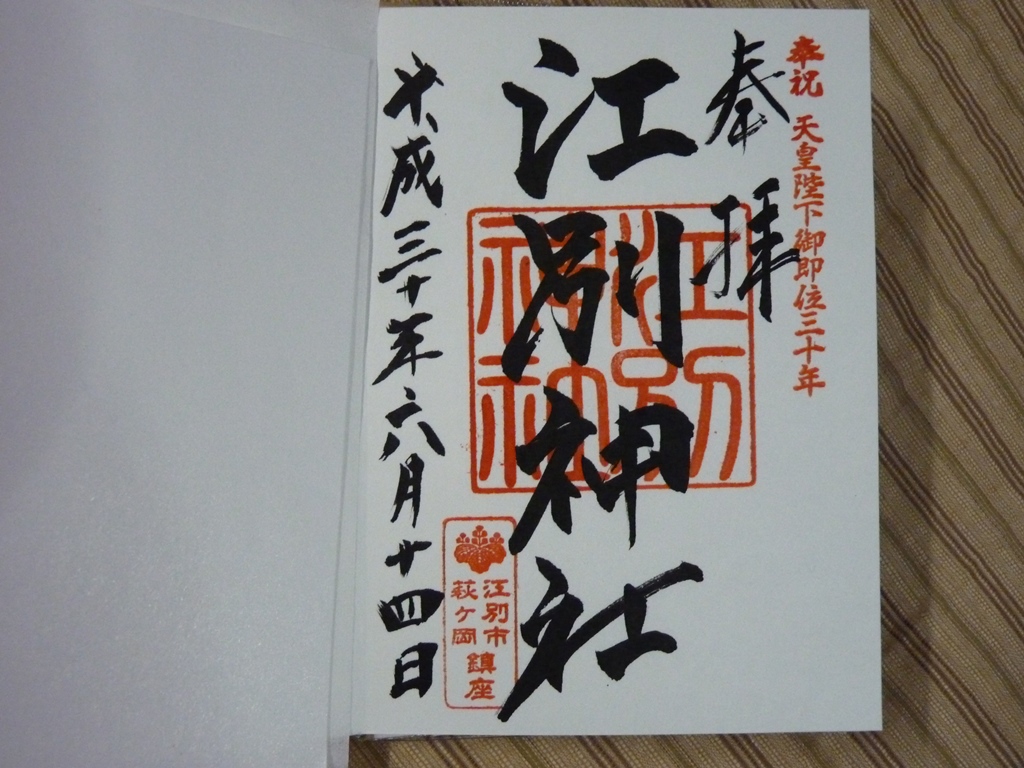 奉祝 天皇陛下御即位三十年
奉拝
江別神社
江別
神社
江別市
萩ヶ岡
鎮座
平成三十年六月十四日